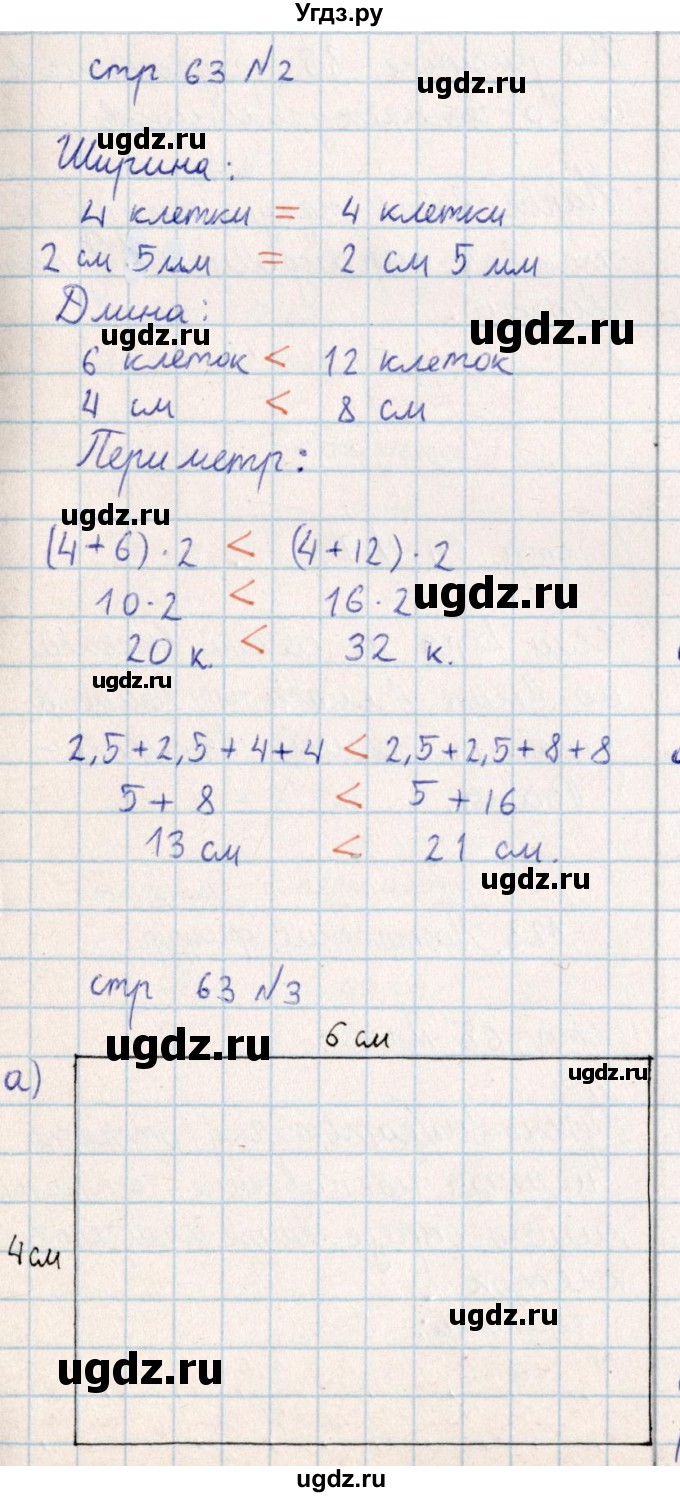 Угдз.ру
стр 63 №2
ugdz.ru
ugdz.ru
Ширина:
4 клетки = 4 клетки
2 см 5мм = 2 см 5 мм
Длина:
ugdz.ru
ugdz.ru
6 клеток < 12 клеток
4 см < 8 см
Периметр:
ugdz.ru
(4+6)·2 < (4+12)·2
10·2 < 16·2
ugdz.ru
20 к. < 32 к.
ugdz.ru
2,5+2,5+4+4 < 2,5+2,5+8+8
5+8 < 5+16
13 см < 21 см.
ugdz.ru
стр 63 №3
6 см
ugdz.ru
ugdz.ru
а)
4см
ugdz.ru
ugdz.ru
ugdz.ru